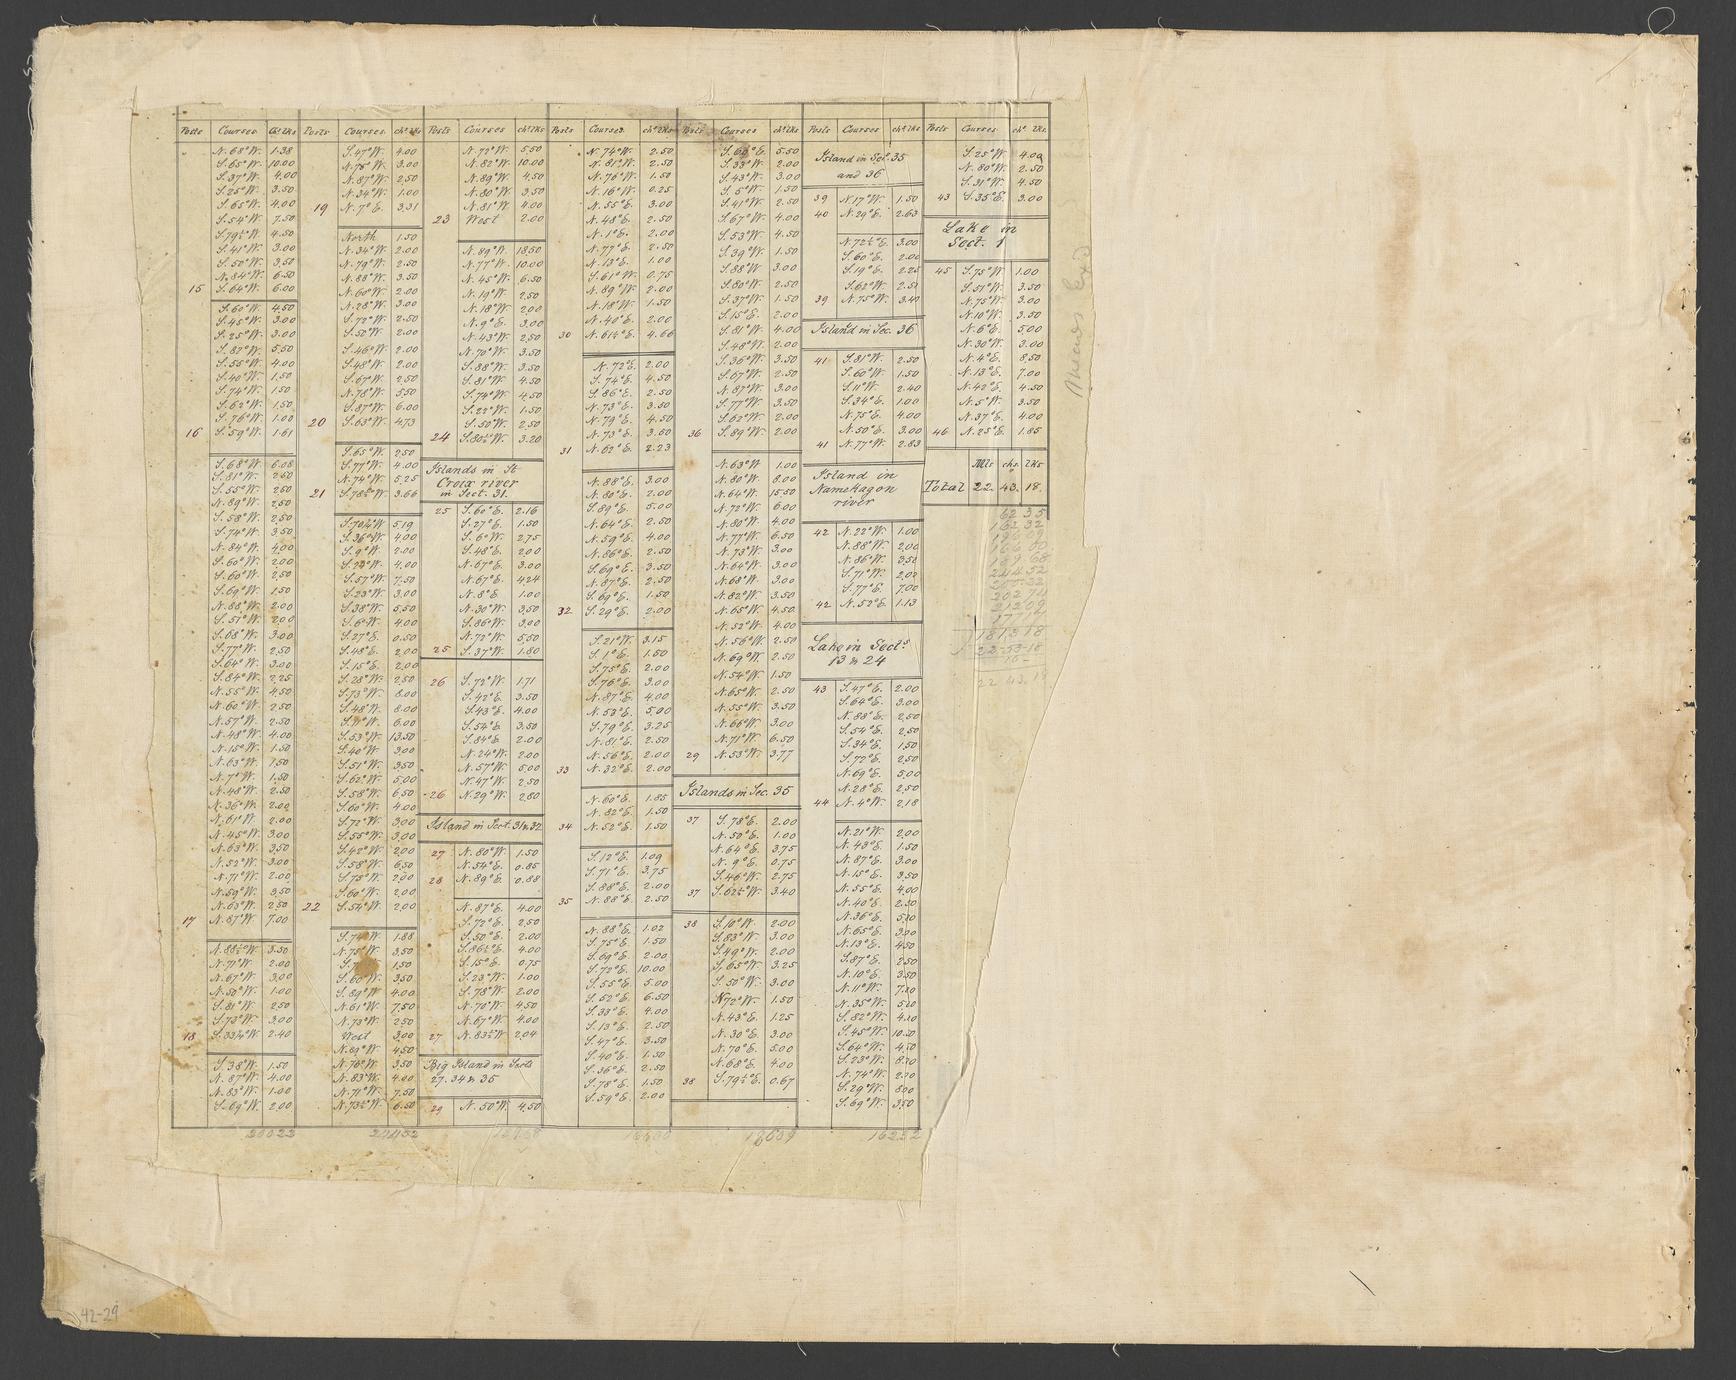 Posts Courses Chs Lks
N. 68° W. 1.38
S. 65° W. 10.00
S. 37° W. 4.00
S. 25° W. 3.50
S. 65° W. 4.00
S. 54° W. 7.50
S. 79½° W. 4.50
S. 41° W. 3.00
S. 50° W. 3.50
N. 84° W. 6.50
15 S. 64° W. 6.00
S. 60° W. 4.50
S. 45° W. 3.00
S. 25° W. 3.00
S. 82° W. 5.50
S. 55° W. 4.00
S. 40° W. 1.50
S. 74° W. 1.50
S. 62° W. 1.50
S. 76° W. 1.00
16 S. 59° W. 1.61
S. 68° W. 6.08
S. 81° W. 2.50
S. 55° W. 2.50
N. 89° W. 2.50
S. 58° W. 2.50
S. 74° W. 3.50
N. 84° W. 4.00
S. 60° W. 2.00
S. 60° W. 2.50
S. 69° W. 1.50
N. 88° W. 2.00
S. 51° W. 2.00
S. 68° W. 3.00
S. 77° W. 2.50
S. 64° W. 3.00
S. 84° W. 2.25
N. 55° W. 4.50
N. 60° W. 2.50
N. 57° W. 2.50
N. 48° W. 4.00
N. 15° W. 1.50
N. 63° W. 1.50
N. 7° W. 1.50
N. 48° W. 2.50
N. 36° W. 2.00
N. 61° W. 2.00
N. 45° W. 3.00
N. 63° W. 3.50
N. 52° W. 3.00
N. 71° W. 2.00
N. 59° W. 3.50
N. 63° W. 2.50
17 N. 87° W. 7.00
N. 88½° W. 3.50
N. 71° W. 2.00
N. 67° W. 3.00
N. 50° W. 1.00
S. 81° W. 2.50
S. 73° W. 3.00
18 S. 33¼° W. 2.40
S. 38° W. 1.50
N. 87° W. 4.00
N. 83° W. 1.00
S. 69° W. 2.00
20022
Posts Courses chs Lks
S. 47° W. 4.00
N. 75° W. 3.00
N. 87° W. 2.50
N. 34° W. 1.00
19 N. 7° E. 3.31
North 1.50
N. 34° W. 2.00
N. 79° W. 2.50
N. 88° W. 3.50
N. 60° W. 2.00
N. 28° W. 3.00
S. 72° W. 2.50
S. 52° W. 2.00
S. 46° W. 2.00
S. 48° W. 2.00
S. 67° W. 2.50
N. 78° W. 5.50
S. 87° W. 6.00
20 S. 63° W. 4.73
S. 65° W. 2.50
S. 77° W. 4.00
N. 74° W. 5.25
21 S. 78½° W. 3.66
S. 70¼° W. 5.19
S. 36° W. 4.00
S. 9° W. 2.00
4.00
S. 57° W. 7.50
S. 23° W. 3.00
S. 38° W. 5.50
S. 6° W. 4.00
S. 27° E. 0.50
S. 48° E. 2.00
S. 15° E. 2.00
S. 28° W. 2.50
S. 73° W. 8.00
S. 48° W. 8.00
6.00
S. 53° W. 13.50
S. 40° W. 3.00
S. 51° W. 3.50
S. 62° W. 5.00
S. 58° W. 6.50
S. 60° W. 4.00
S. 72° W. 3.00
S. 55° W. 3.00
S. 42° W. 2.00
S. 58° W. 6.50
S. 75° W. 2.00
S. 60° W. 2.00
22 S. 54° W. 2.00
S. 74° W. 1.88
N. 75° W. 3.50
1.50
S. 60° W. 3.50
S. 89° W. 4.00
N. 61° W. 7.50
N. 73° W. 2.50
West 3.00
N. 89° W. 4.50
N. 76° W. 3.50
N. 83° W. 4.00
N. 71° W. 7.50
N. 73½° W. 6.50
24452
Posts Courses chs Lks
N. 72° W. 5.50
N. 82° W. 10.00
N. 89° W. 4.50
N. 80° W. 3.50
N. 81° W. 4.00
23 West 2.00
N. 89° W. 18.50
N. 77° W. 10.00
N. 45° W. 6.50
N. 19° W. 2.50
N. 18° W. 2.00
N. 9° E. 3.00
N. 43° W. 2.50
N. 70° W. 3.50
S. 88° W. 3.50
S. 81° W. 4.50
S. 74° W. 4.50
S. 22° W. 1.50
S. 50° W. 2.50
24 S. 80½° W. 3.20
Islands in St
Croix river
in Sect. 31.
25 S. 60° E. 2.16
S. 27° E. 1.50
S. 6° W. 2.75
S. 48° E. 2.00
N. 67° E. 3.00
N. 67° E. 4.24
N. 8° E. 1.00
N. 30° W. 3.50
S. 86° W. 3.00
N. 72° W. 5.50
25 S. 37° W. 1.80
26 S. 72° W. 1.71
S. 42° E. 3.50
S. 43° E. 4.00
S. 54° E. 3.50
S. 84° E. 2.00
N. 24° W. 2.00
N. 57° W. 5.00
N. 47° W. 2.50
26 N. 29° W. 2.80
Island in Sect. 31 & 32
27 N. 80° W. 1.50
N. 54° E. 0.85
28 N. 89° E. 0.88
N. 87° E. 4.00
S. 72° E. 2.50
S. 50° E. 2.00
S. 86½° E. 4.00
S. 15° E. 0.75
S. 23° W. 1.00
S. 78° W. 2.00
N. 70° W. 4.50
N. 67° W. 4.00
27 N. 83½° W. 2.04
Big Island in Sects
27. 34 & 35
29 N. 50° W. 4.50
Posts Courses chs Lks
N. 74° W. 2.50
N. 81° W. 2.50
N. 76° W. 1.50
N. 16° W. 0.25
N. 55° E. 3.00
N. 48° E. 2.50
N. 1° E. 2.00
N. 77° E. 2.50
N. 13° E. 1.00
S. 61° W. 0.75
N. 89° W. 2.00
N. 18° W. 1.50
N. 40° E. 2.00
30 N. 61½° E. 4.66
N. 72° E. 2.00
S. 74° E. 4.50
S. 86° E. 2.50
N. 73° E. 3.50
N. 79° E. 4.50
N. 73° E. 3.50
31 N. 62° E. 2.23
N. 88° E. 3.00
N. 80° E. 2.00
S. 89° E. 5.00
N. 64° E. 2.50
N. 59° E. 4.00
N. 86° E. 2.50
S. 69° E. 3.50
N. 87° E. 2.50
S. 69° E. 1.50
32 S. 29° E. 2.00
S. 21° W. 3.15
S. 1° E. 1.50
S. 75° E. 2.00
S. 76° E. 3.00
N. 87° E. 4.00
N. 53° E. 5.00
S. 79° E. 3.25
N. 81° E. 2.50
N. 56° E. 2.00
33 N. 32° E. 2.00
N. 60° E. 1.85
N. 82° E. 1.50
34 N. 52° E. 1.50
S. 12° E. 1.09
S. 71° E. 3.75
S. 88° E. 2.00
35 N. 88° E. 2.50
N. 88° E. 1.02
S. 75° E. 1.50
S. 69° E. 2.00
S. 72° E. 10.00
S. 55° E. 5.00
S. 52° E. 6.50
S. 33° E. 4.00
S. 13° E. 2.50
S. 47° E. 3.50
S. 40° E. 1.50
S. 36° E. 2.50
S. 78° E. 1.50
S. 59° E. 2.00
16600
Posts Courses chs Lks
S. 60° E. 5.50
S. 33° W. 2.00
S. 43° W. 3.00
S. 5° W. 1.50
S. 41° W. 2.50
S. 67° W. 4.00
S. 53° W. 4.50
S. 39° W. 1.50
S. 88° W. 3.00
S. 80° W. 2.50
S. 37° W. 1.50
S. 15° E. 2.00
S. 81° W. 4.00
S. 48° W. 2.00
S. 36° W. 3.50
S. 67° W. 2.50
N. 87° W. 3.00
S. 77° W. 3.50
S. 62° W. 2.00
36 S. 89° W. 2.00
N. 63° W 1.00
N. 80° W. 8.00
N. 64° W. 15.50
N. 72° W. 6.00
N. 80° W. 4.00
N. 77° W. 6.50
N. 73° W. 3.00
N. 64° W. 3.00
N. 68° W. 3.00
N. 82° W. 3.50
N. 65° W. 4.50
N. 52° W. 4.00
N. 56° W. 2.50
N. 69° W. 2.50
N. 54° W. 1.50
N. 65° W. 2.50
N. 55° W. 3.50
N. 66° W. 3.00
N. 71° W. 6.50
29 N. 53° W. 3.77
Islands in Sec. 35
37 S. 78° E. 2.00
N. 50° E. 1.00
N. 64° E. 3.75
N. 9° E. 0.75
S. 46° W. 2.75
37 S. 62½° W. 3.40
38 S. 10° W. 2.00
S. 83° W. 3.00
S. 49° W. 2.00
S. 65° W. 3.25
S. 50° W. 3.00
N 72° W. 1.50
N. 43° E. 1.25
N. 30° E. 3.00
N. 70° E. 5.00
N. 68° E. 4.00
38 S. 79½° E. 0.67
Posts Courses chs Lks
Island in Sec. 35
and 36
39 N 17° W. 1.50
40 N. 29° E. 2.63
N. 72½° E. 3.00
S. 60° E. 2.00
S. 19° E. 2.25
S. 62° W. 2.51
39 N. 75° W. 3.40
Island in Sec. 36
41 S. 81° W. 2.50
S. 60° W. 1.50
S. 11° W. 2.40
S. 34° E. 1.00
N. 75° E. 4.00
N. 50° E. 3.00
41 N. 77° W. 2.83
Island in
Namekagon
river
42 N. 22° W. 1.00
N. 88° W. 2.00
N. 86° W. 3.50
S. 71° W. 2.02
S. 77° E. 7.00
42 N. 52° E. 1.13
Lake in Sects
13 & 24
43 S. 47° E. 2.00
S. 64° E. 3.00
N. 88° E. 2.50
S. 54° E. 2.50
S. 34° E. 1.50
S. 72° E. 2.50
N. 69° E. 5.00
N. 28° E. 2.50
44 N. 4° W. 2.18
N. 21° W. 2.00
N. 43° E. 1.50
N. 87° E. 3.00
N. 15° E. 3.50
N. 55° E. 4.00
N. 40° E. 2.50
N. 36° E. 5.00
N. 65° E. 3.00
N. 13° E. 4.50
S. 87° E. 2.50
N. 10° E. 3.50
N. 11° W. 7.00
N. 35° W. 5.00
S. 82° W. 4.00
S. 45° W. 10.50
S. 64° W. 4.50
S. 23° W. 8.00
N. 74° W. 2.00
S. 29° W. 8.00
S. 69° W. 3.50
16232
Posts Courses chs Lks
S. 25° W. 4.00
N. 80° W. 2.50
S. 31° W. 4.50
43 S. 35° E. 3.00
Lake in
Sect. 1
45 S. 75° W. 1.00
S. 57° W. 3.50
N. 75° W. 3.00
N. 10° W. 3.50
N. 6° E. 5.00
N. 30° W. 3.00
N. 4° E. 8.50
N. 13° E. 7.00
N. 42° E. 4.50
N. 5° W. 3.50
N. 37° E. 4.00
46 N. 25° E. 1.85
Mls chs. Lks
Total 22. 43. 18.
6235
16232
24452
20274
21209
17712
181318
22-53-18
10-
22 43.18
42-29